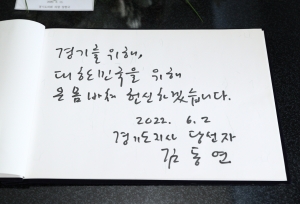 경기를 위해,
대한민국을 위해
온 몸 바쳐 헌신하겠습니다.
2022. 6. 2
경기도지사 당선자
김동연